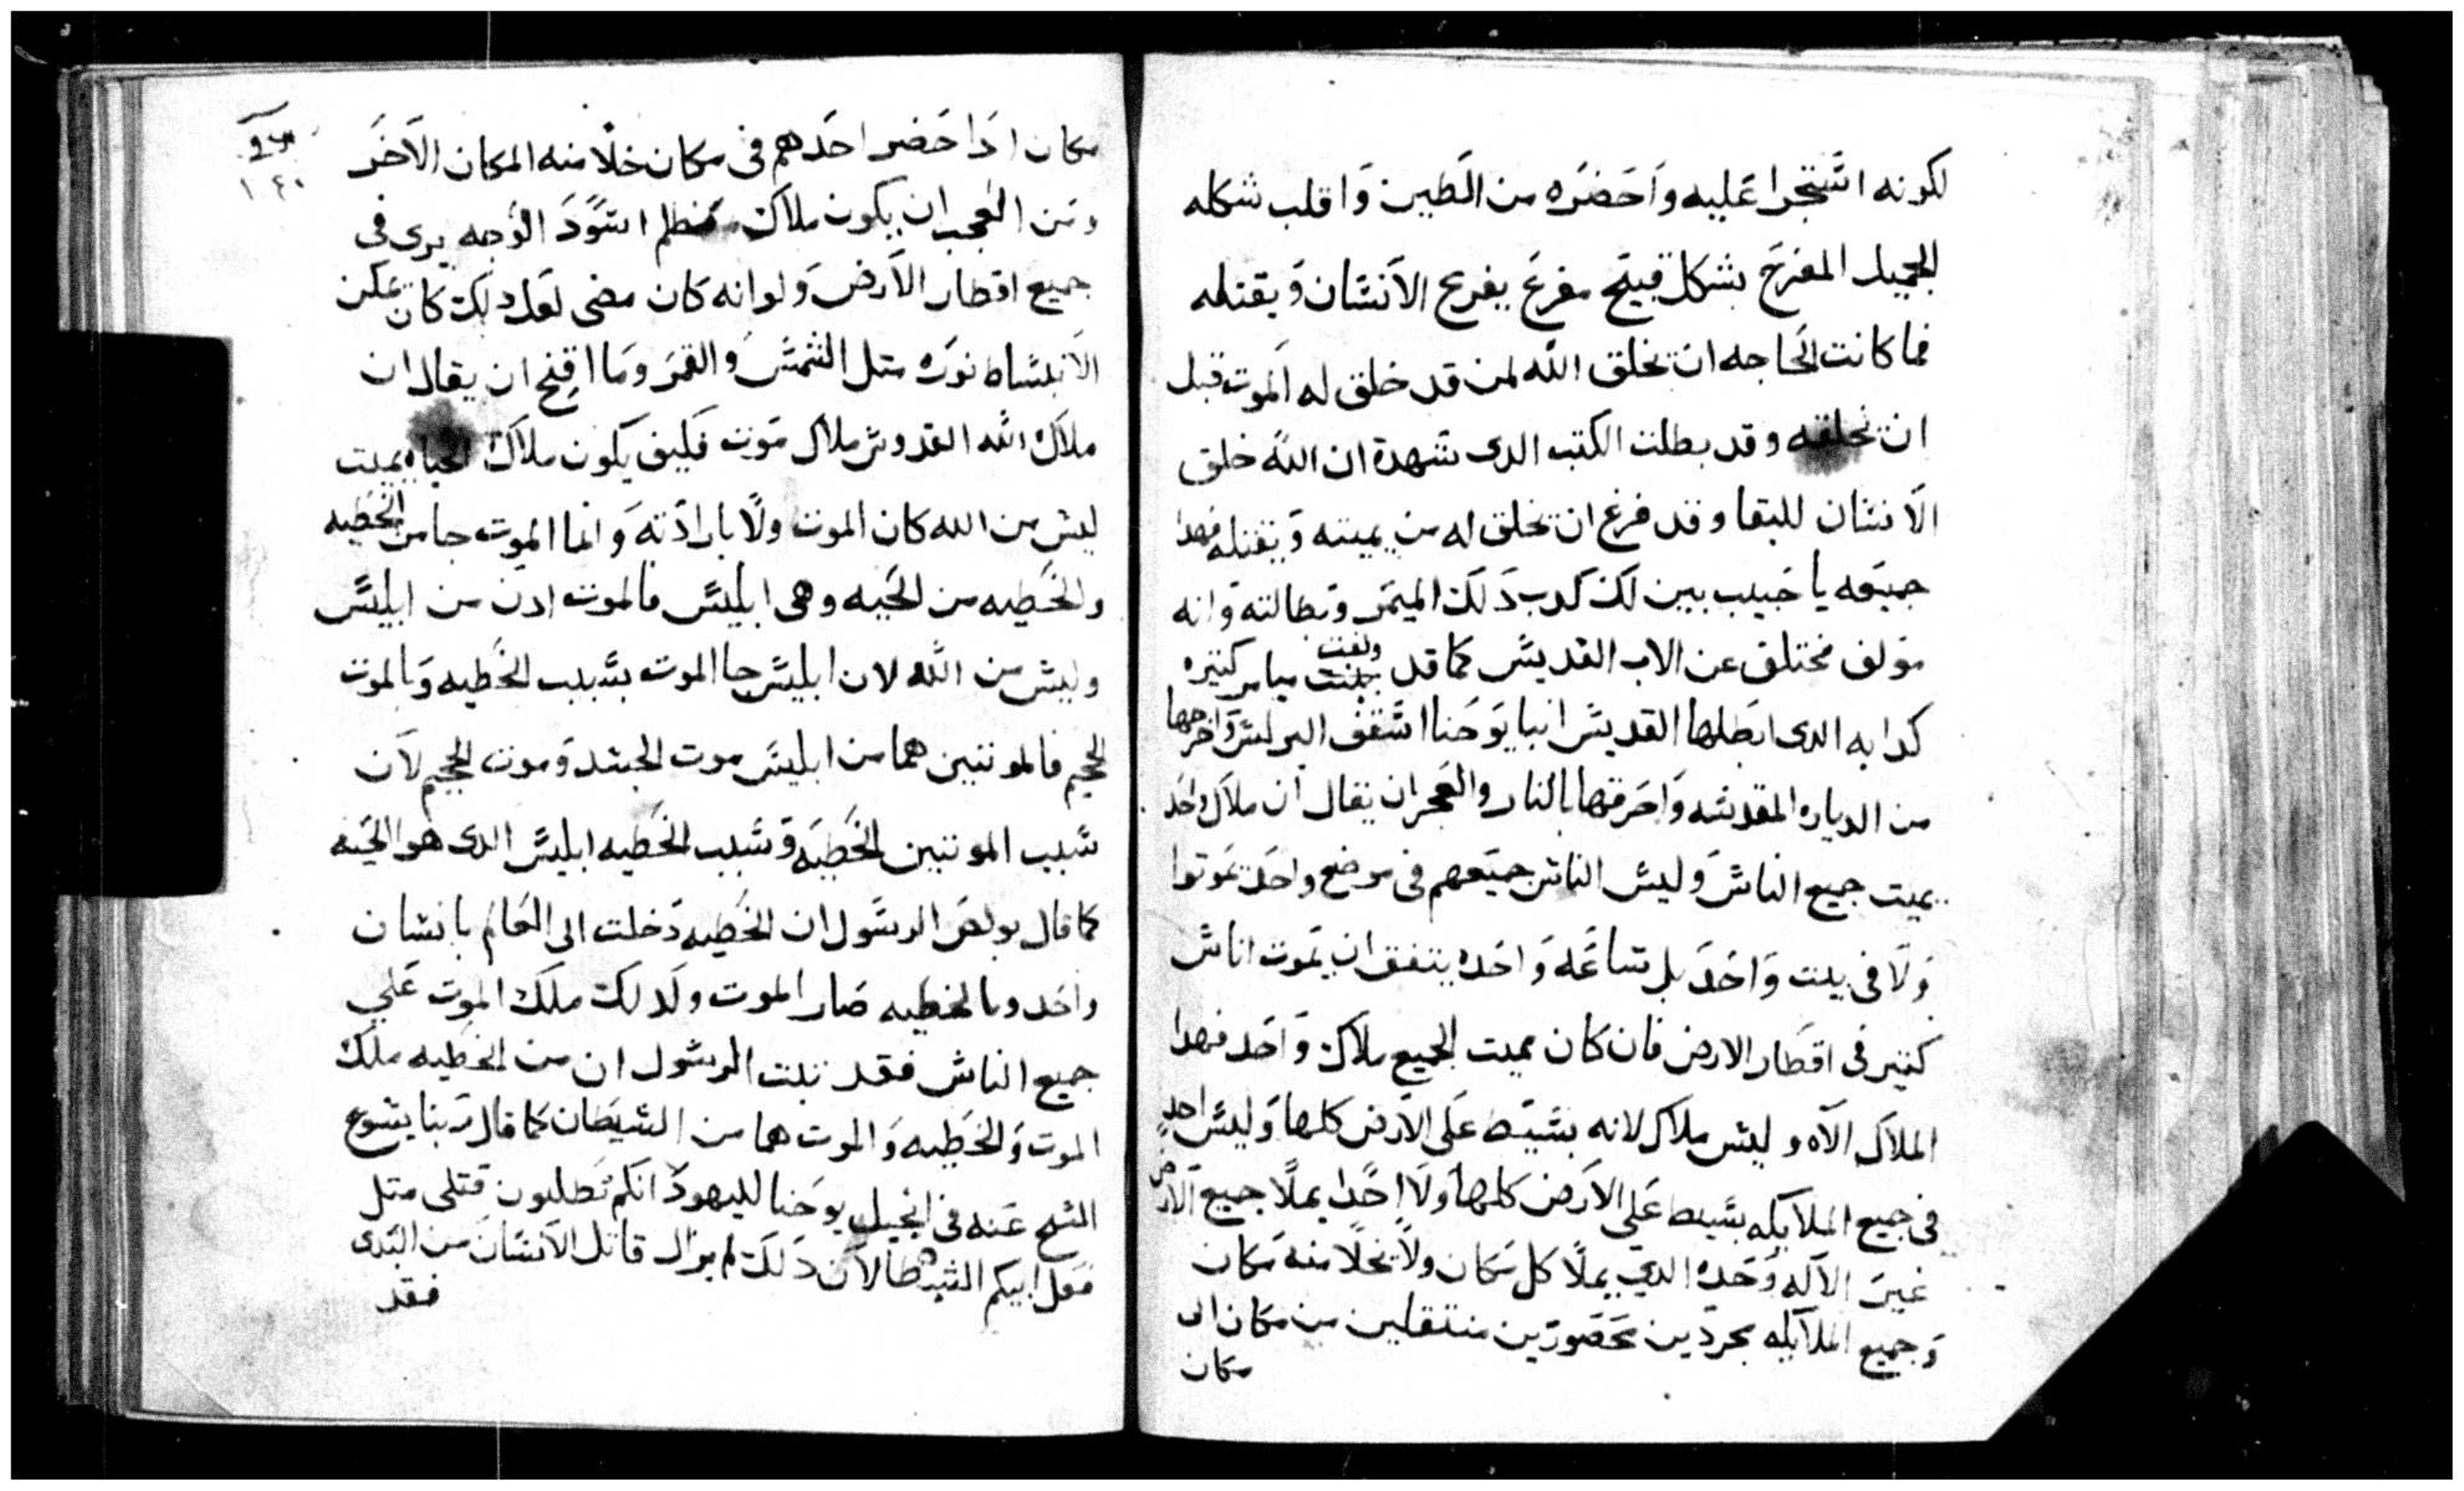 لكونه استجرا عليه واحضره من الطين واقلب شكله
الجميل المفرح بشكل قبيح مفزع يفزع الانسان ويقتله
فما كانت الحاجه ان يخلق الله لمن قد خلق له الموت قبل
ان يخلقه وقد بطلت الكتب الدى شهدة ان الله خلق
الانسان للبقا وقد فرغ ان يخلق له من يميته ويقتله فهدا
جميعه يا حبيب يبين لك كدب دلك الميمر وبطالته وانه
مولف مختلق عن الاب القديس كما قد ولفت ميامر كتيره
كدابه الدى ابطلها القديس انبا يوحنا اسقف البرلس واخرجها
من الدياره المقدسه واحرقها بالنار والعجب ان يقال ان ملاك واحد
يميت جميع الناس وليس الناس جميعهم فى موضع واحد يموتوا
ولا فى بيت واحد بل ساعه واحده يتفق ان يموت اناس
كتير فى اقطار الارض فان كان يميت الجميع ملاك واحد فهدا
الملاك الاه وليس ملاك لانه بسيط على الارض كلها وليس احد
فى جميع الملايكه بسيط على الارض كلها ولا احدا يملا جميع الارض
غير الاله وحده الدي يملا كل مكان ولا يخلا منه مكان
وجميع الملايكه مجردين محصورين منتقلين من مكان الى
مكان
مكان ادا حضر احدهم فى مكان خلا منه المكان الاخر
ومن العجب ان يكون ملاك مظلم اسود الوجه يرى فى
جميع اقطار الارض ولو انه كان مضى لعل دلك كان يمكن
الانبساط نوره متل الشمس والقمر وما اقبح ان يقال ان
ملاك الله القدوس ملاك موت فكيف يكون ملاك الحياه يميت
ليس من الله كان الموت ولا بارادته وانما الموت جا من الخطيه
والخطيه من الحيه وهى ابليس فالموت ادن من ابليس
وليس من الله لان ابليس جا الموت بسبب الخطيه وبالموت
الجحيم فالموتتين هما من ابليس موت الجسد وموت الجحيم لان
سبب الموتتين الخطيه وسبب الخطيه ابليس الدى هو الحيه
كما قال بولص الرسول ان الخطيه دخلت الى العالم بانسان
واحد وبالخطيه صار الموت ولدلك ملك الموت علي
جميع الناس فقد تبت الرسول ان من الخطيه ملك
الموت والخطيه والموت هما من الشيطان كما قال ربنا يسوع
المسيح عنه فى انجيل يوحنا لليهود انكم تطلبون قتلى متل
فعل ابيكم الشيطان لان دلك لم يزال قاتل الانسان من البدى
فقد